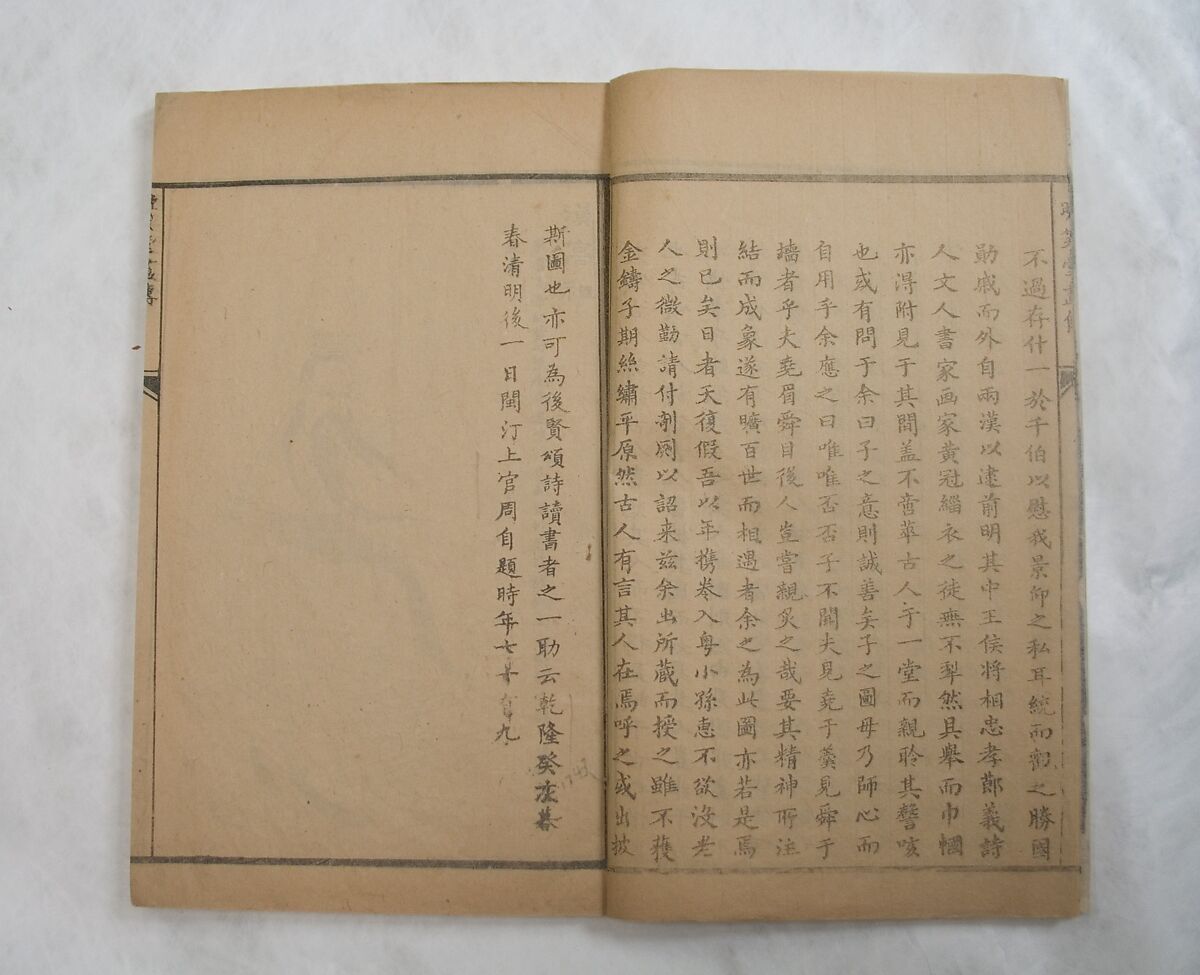 不過存什一於千伯以慰我景仰之私耳統而觀之勝國
勛戚而外自兩漢以逮前明其中王侯將相忠孝節義詩
人文人書家画家黄冠緇衣之徒無不犁然具舉而巾幗
亦得附見于其間盖不啻萃古人于一堂而親聆其謦咳
也或有問于余曰子之意則誠善矣子之圖毋乃師心而
自用乎余應之曰唯唯否否子不聞夫見堯于羹見舜于
墻者乎夫堯眉舜目後人豈嘗親炙之哉要其精神所注
結而成象遂有曠百世而相遇者余之為此圖亦若是焉
則已矣日者天復假吾以年携拳入粤小孫惠不欲没老
人之微勩請付剞劂以詔来兹余出所蔵而授之雖不獲
金鑄子期絲繡平原然古人有言其人在焉呼之或出披
斯圖也亦可為後賢頌詩讀書者之一助云乾隆癸亥暮
春清明後一日閩汀上官周自題時年七十有九
晚笑堂畫傳
1743